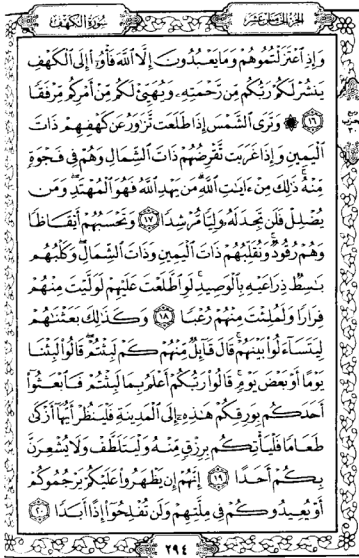 سورة الكهف
الجزء الخامس عشر
وَإِذِ ٱعْتَزَلْتُمُوهُمْ وَمَا يَعْبُدُونَ إِلَّا ٱللَّهَ فَأْوُۥٓا۟ إِلَى ٱلْكَهْفِ
يَنشُرْ لَكُمْ رَبُّكُم مِّن رَّحْمَتِهِۦ وَيُهَيِّئْ لَكُم مِّنْ أَمْرِكُم مِّرْفَقًا
١٦ ۞ وَتَرَى ٱلشَّمْسَ إِذَا طَلَعَت تَّزَٰوَرُ عَن كَهْفِهِمْ ذَاتَ
ٱلْيَمِينِ وَإِذَا غَرَبَت تَّقْرِضُهُمْ ذَاتَ ٱلشِّمَالِ وَهُمْ فِى فَجْوَةٍ
مِّنْهُ ۚ ذَٰلِكَ مِنْ ءَايَٰتِ ٱللَّهِ ۗ مَن يَهْدِ ٱللَّهُ فَهُوَ ٱلْمُهْتَدِ ۖ وَمَن
يُضْلِلْ فَلَن تَجِدَ لَهُۥ وَلِيًّا مُّرْشِدًا ١٧ وَتَحْسَبُهُمْ أَيْقَاظًا
وَهُمْ رُقُودٌ ۚ وَنُقَلِّبُهُمْ ذَاتَ ٱلْيَمِينِ وَذَاتَ ٱلشِّمَالِ ۖ وَكَلْبُهُم
بَٰسِطٌ ذِرَاعَيْهِ بِٱلْوَصِيدِ ۚ لَوِ ٱطَّلَعْتَ عَلَيْهِمْ لَوَلَّيْتَ مِنْهُمْ
فِرَارًا وَلَمُلِئْتَ مِنْهُمْ رُعْبًا ١٨ وَكَذَٰلِكَ بَعَثْنَٰهُمْ
لِيَتَسَآءَلُوا۟ بَيْنَهُمْ ۚ قَالَ قَآئِلٌ مِّنْهُمْ كَمْ لَبِثْتُمْ ۖ قَالُوا۟ لَبِثْنَا
يَوْمًا أَوْ بَعْضَ يَوْمٍ ۚ قَالُوا۟ رَبُّكُمْ أَعْلَمُ بِمَا لَبِثْتُمْ فَٱبْعَثُوٓا۟
أَحَدَكُم بِوَرِقِكُمْ هَٰذِهِۦٓ إِلَى ٱلْمَدِينَةِ فَلْيَنظُرْ أَيُّهَآ أَزْكَىٰ
طَعَامًا فَلْيَأْتِكُم بِرِزْقٍ مِّنْهُ وَلْيَتَلَطَّفْ وَلَا يُشْعِرَنَّ
بِكُمْ أَحَدًا ١٩ إِنَّهُمْ إِن يَظْهَرُوا۟ عَلَيْكُمْ يَرْجُمُوكُمْ
أَوْ يُعِيدُوكُمْ فِى مِلَّتِهِمْ وَلَن تُفْلِحُوٓا۟ إِذًا أَبَدًا ٢٠
٢٩٤